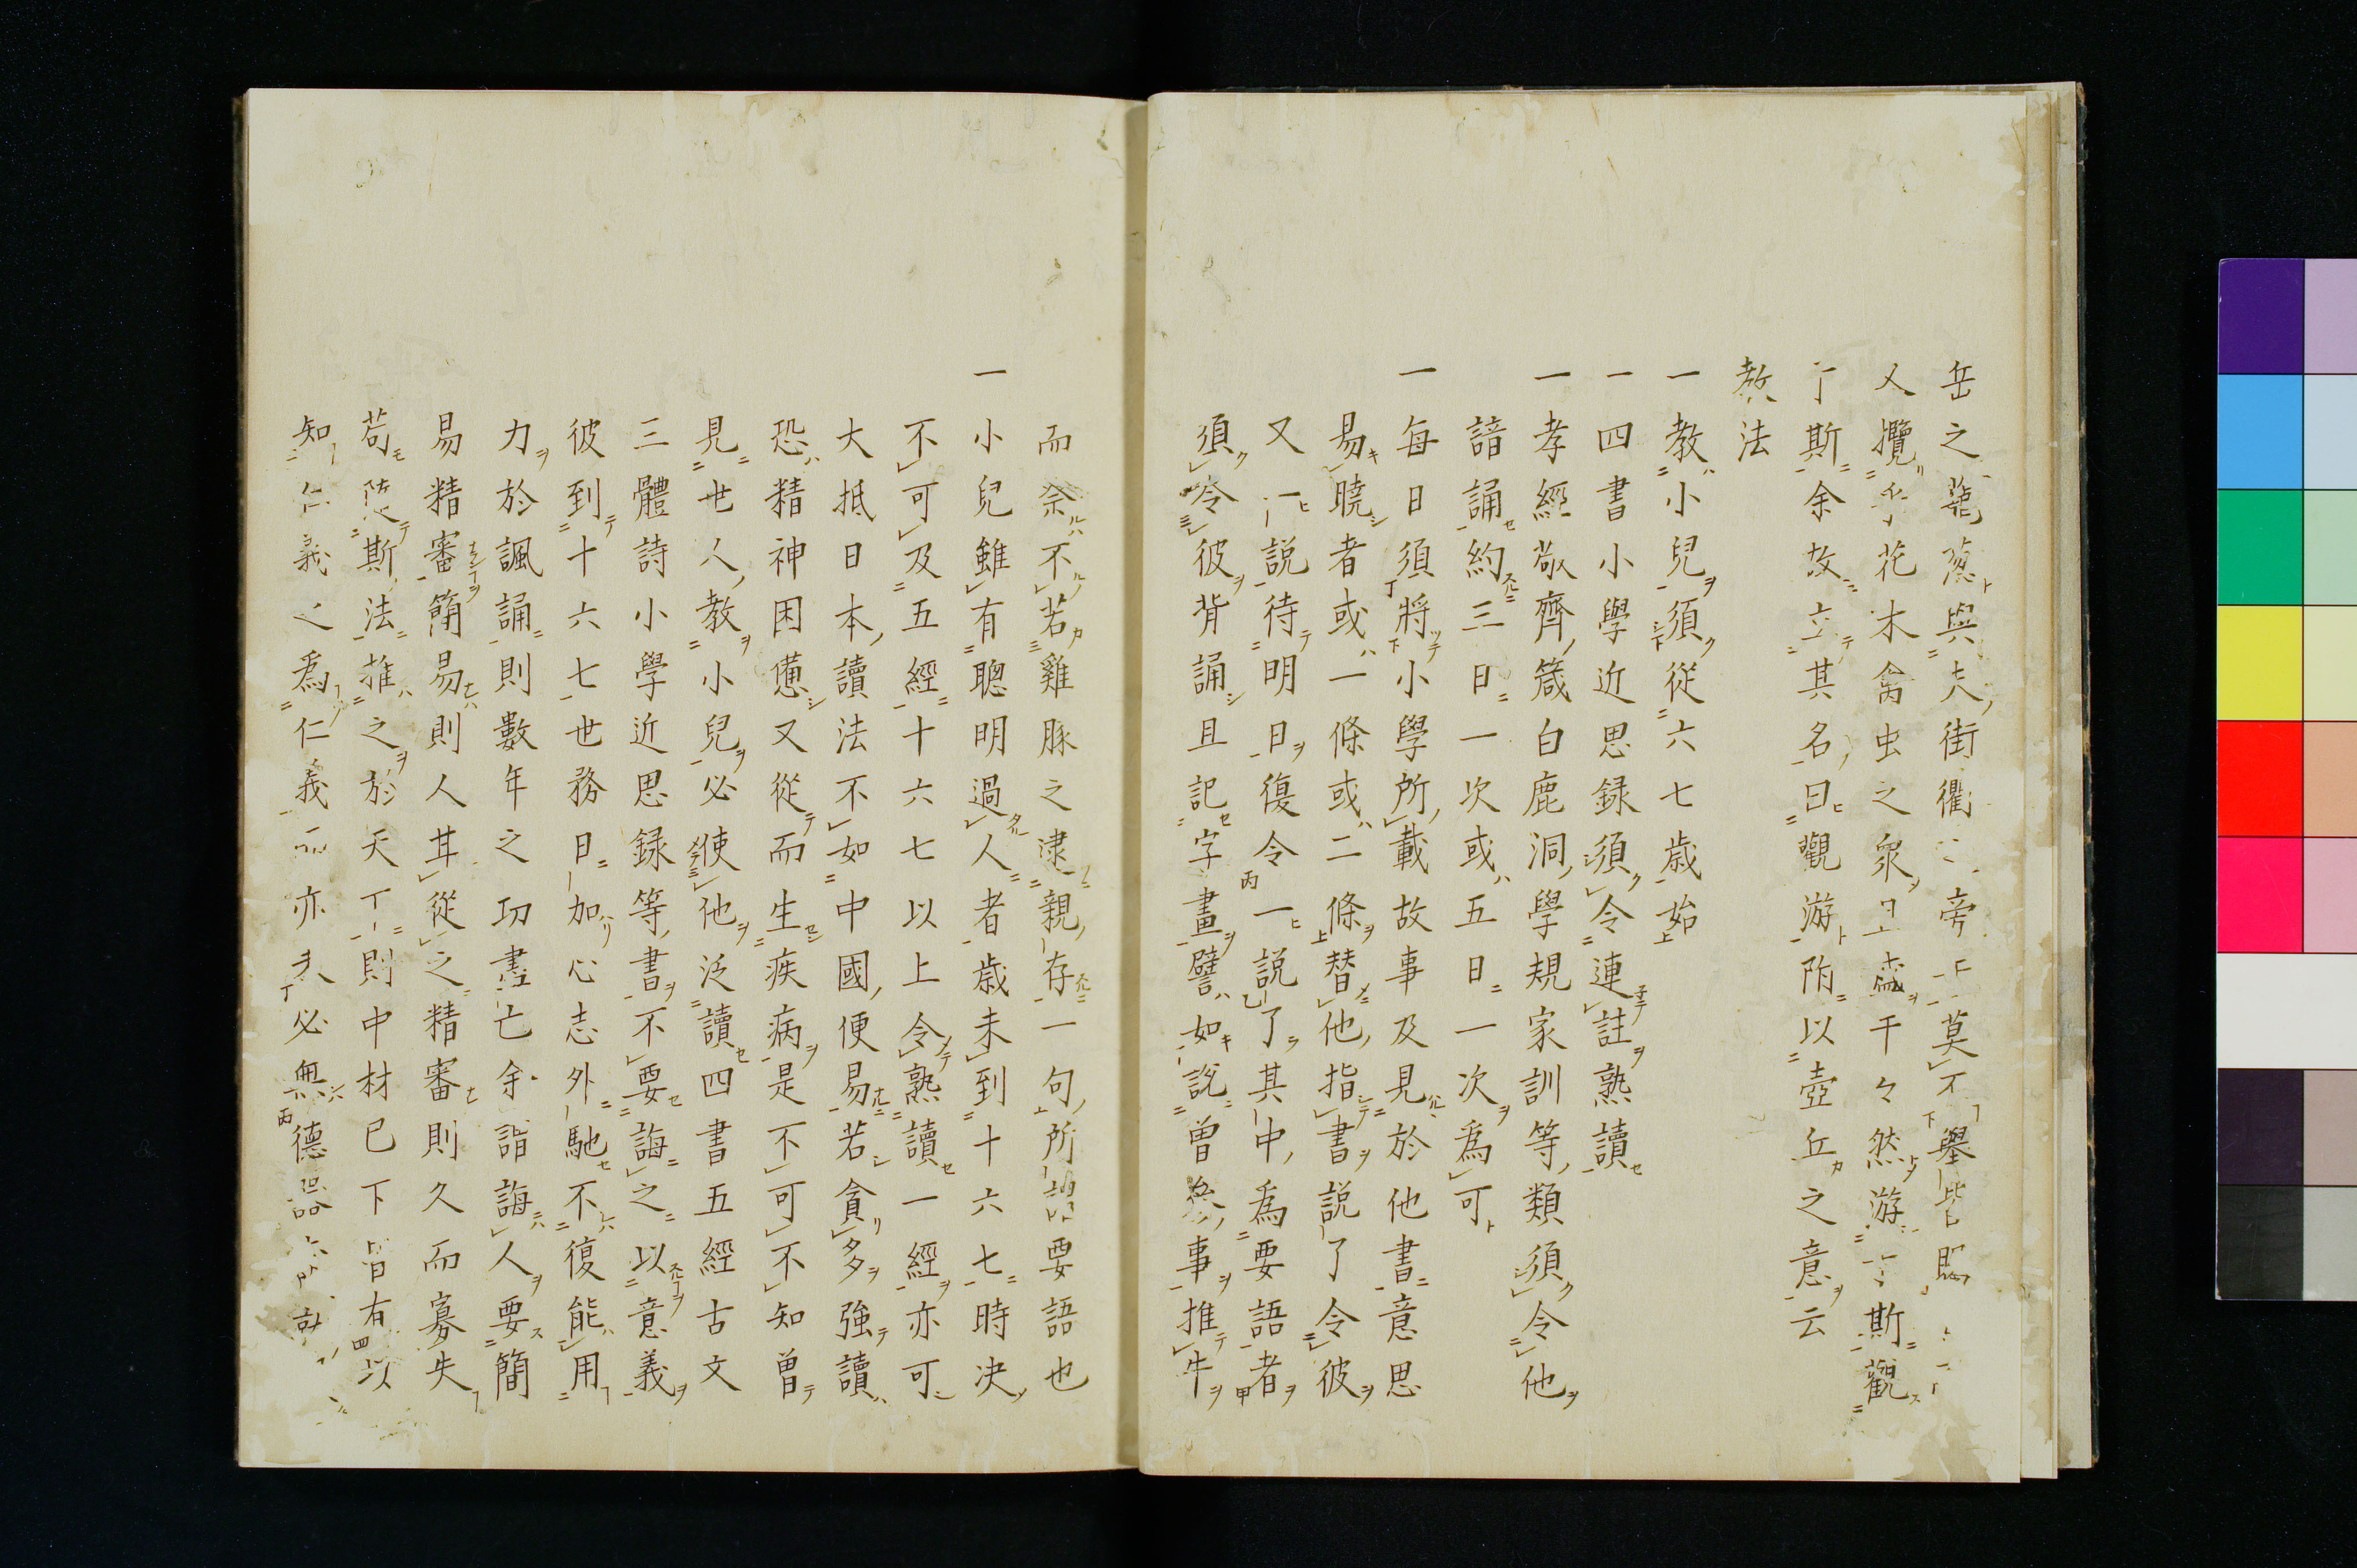 岳之蘢葱與夫街衢之旁午莫不擧皆臨
人攬花木禽虫之衆日盛干々然游于斯觀
于斯余故立其名曰觀游附以壺丘之意云
教法
一教小兒須從六七歲始
一四書小學近思録須令連註熟讀
一孝經敬齊箴白鹿洞學規家訓等類須令他
諳誦約三日一次或五日一次爲可
一每日須將小學所載故事及見於他書意思
易曉者或一條或二條替他指書説了令彼
又一説待明日復令一説了其中爲要語者
須令彼背誦且記字畫譬如説曾參事推牛
而祭不若雞豚之逮親存一句所謂要語也
一小兒雖有聰明過人者歲未到十六七時决
不可及五經十六七以上令熟讀一經亦可
大抵日本讀法不如中國便易若貪多強讀
恐精神困憊又從而生疾病是不可不知曾
見世人教小兒必使他泛讀四書五經古文
三體詩小學近思録等書不要誨之以意義
彼到十六七世務日加心志外馳不復能用
力於諷誦則數年之功盡亡余謂誨人要簡
易精審簡易則人其從之精審則久而寡失
苟從斯法推之於天下則中材已下皆有以
知仁義之爲仁義而亦未必無德器所就